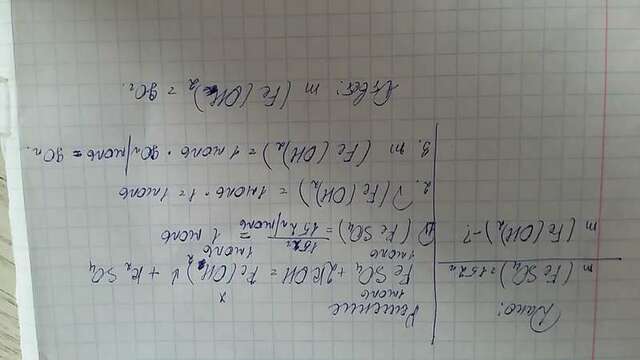 Дано:
m (FeSO₄) = 152г
m (Fe(OH)₂) - ?
Решение
1 моль x
FeSO₄ + 2KOH = Fe(OH)₂↓ + K₂SO₄
1 моль 1 моль
1. ν (FeSO₄) = 152г / 152г/моль = 1 моль
2. ν (Fe(OH)₂) = 1 моль · 1 = 1 моль
3. m (Fe(OH)₂) = 1 моль · 90г/моль = 90г.
Ответ: m (Fe(OH)₂ = 90г.